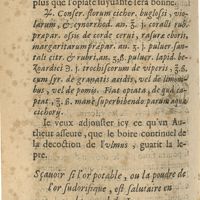 plus que l'opiate suyuante sera bonne.
℞. Conser. florum cichor. buglossi, vio-
larum, & cynorrhod. an. ℥. j. coralli rub.
præpar. ossis de corde cerui, rasuræ eboris,
margaritarum præpar. an. ʒ. j. puluer. san-
tali citr. & rubri, an. ʒ. ß. puluer. lapid. be-
zoardici ℈. j. trochiscorum de viperis, ʒ. ß.
cum syr. de granatis acidis, vel de limoni-
bus, vel de pomis. Fiat opiata, de qua ca-
piat, ʒ. ß. mane superbibendo parum aquæ
cichorij.
Ie veux adiouster icy ce qu'vn Au-
theur asseure, que le boire continuel de
la decoction de Vulmus, guarit la le-
pre.
Sçauoir si l'or potable, ou la poudre de
l'or sudorifique, est salutaire en